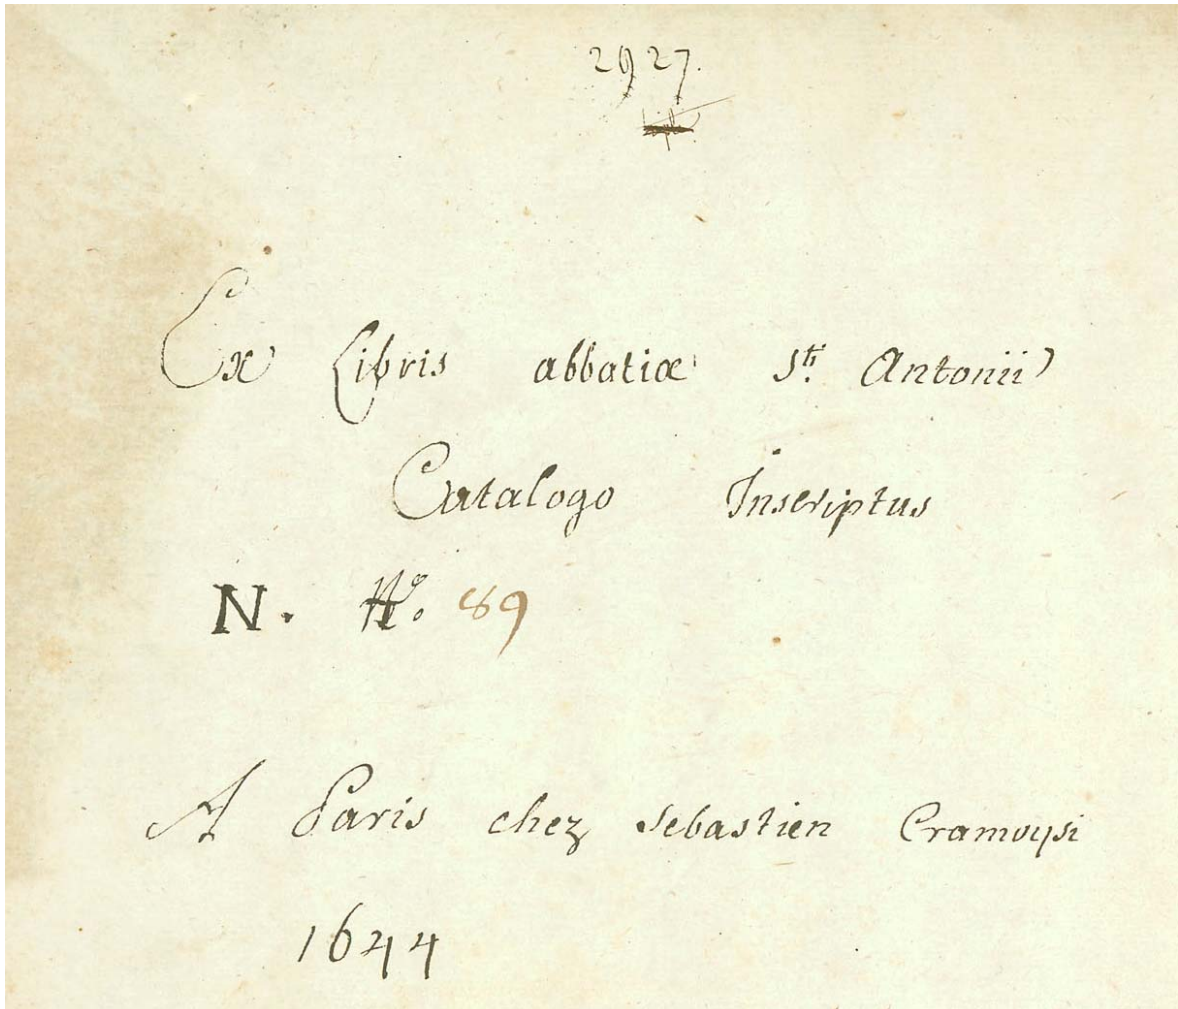 2927.
Ex Libris abbatiæ Sti. Antonii
Catalogo Inscriptus
N. No. 89
A Paris chez sebastien Cramoysi
1644